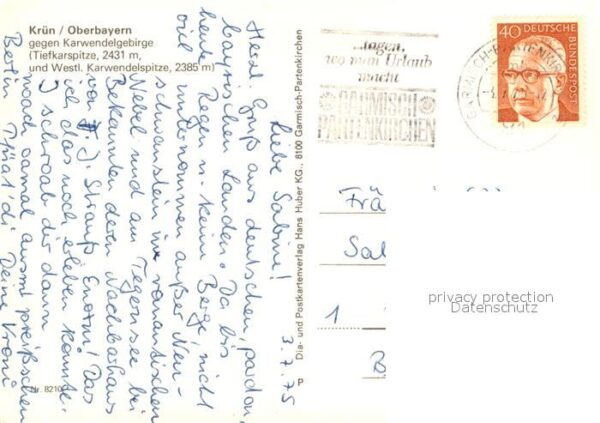 Krün / Oberbayern
gegen Karwendelgebirge
(Tiefkarspitze, 2431 m,
und Westl. Karwendelspitze, 2385 m)
3.7.75
Liebe Sabine!
Herzl. Gruß aus deutschen, pardon,
bayrischen Landen. Da bis
heute Regen u. keine Berge, nicht
viel unternommen außer Neu-
schwanstein im romantischen
Nebel und am Tegernsee bei
Bekannten deren Nachbarhaus
von F. J. Strauß Enorm! Das
ich das noch erleben konnte.
I schroab dir dann
noch oamal ausm preißschen
Berlin Pfüat' di Deine Vroni
Nr. 8210
Dia- und Postkartenverlag Hans Huber KG., 8100 Garmisch-Partenkirchen
P
...tagen,
wo man Urlaub
macht
GARMISCH
PARTENKIRCHEN
GARMISCH-PARTENKIRCHEN
40
DEUTSCHE
BUNDESPOST
Frä
Sa
1
B
privacy protection
Datenschutz